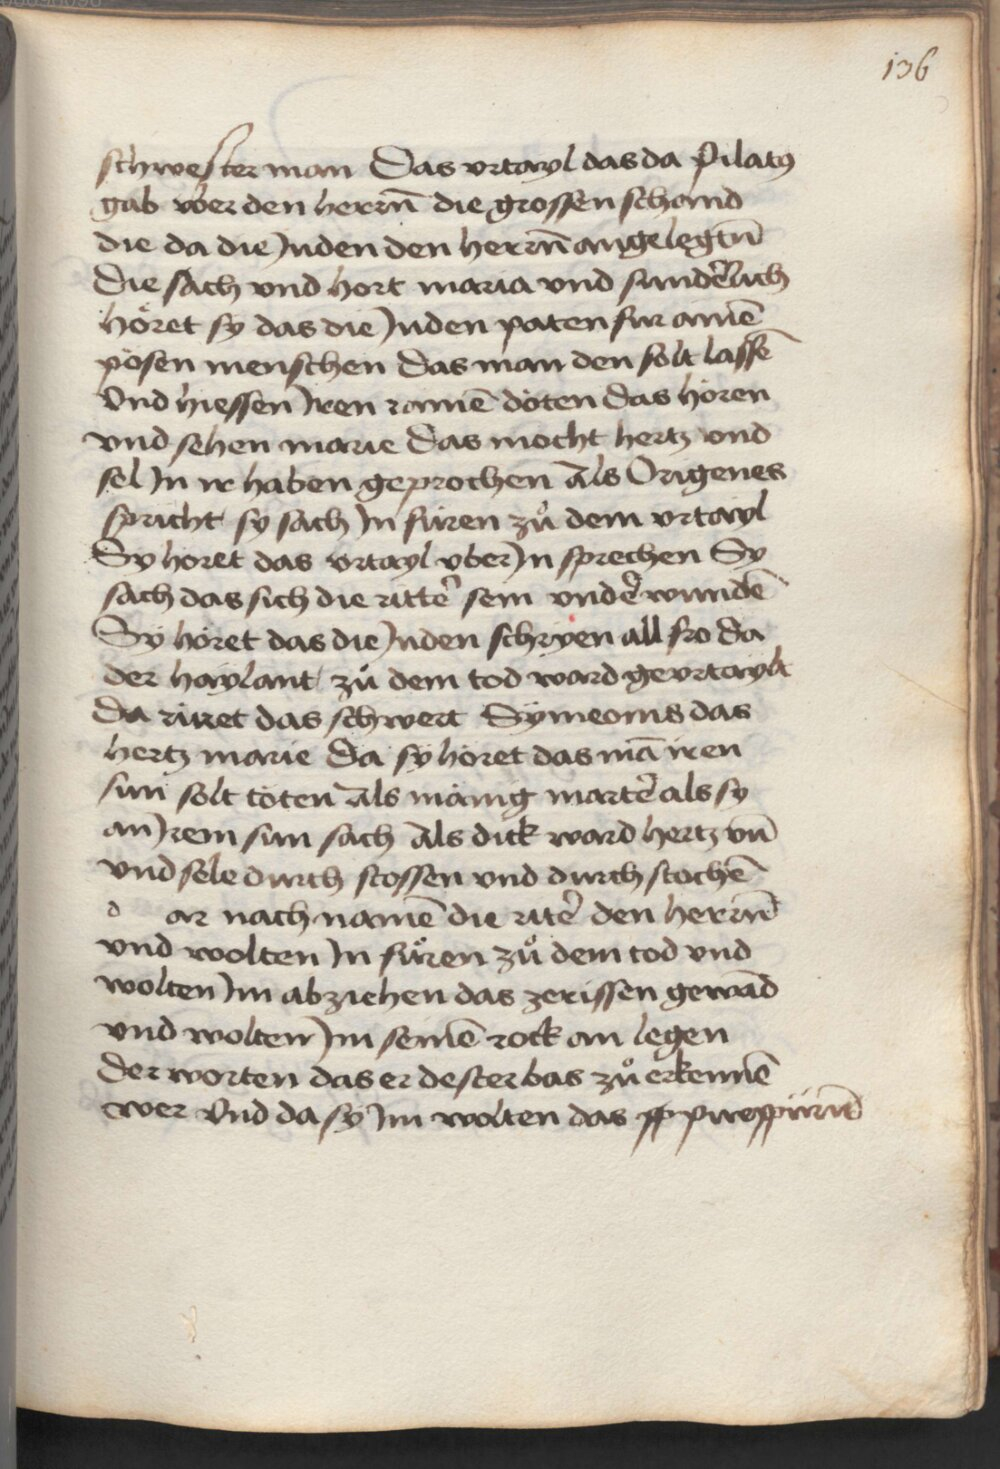 136
schwester man Das vrtayl das da Pilatꝯ
gab vber den herrn̄ die grossen schand
die da die Juden den herrn̄ angelegtn̄
Die sach vnd hort maria vnd sunderlich
höret sy das die Juden paten fur ainē
pösen menschen das man den solt lassē
Vnd hiessen Jren ainē döten das hören
vnd sehen marie das mocht hertz vnd
sel Jn ir haben geprochen Als Origenes
spricht sy sach Jn füren zů dem vrtayl
Sy horet das vrtayl vber Jn sprechen Sy
sach das sich die ritter sein vnderwundē
Sy höret das die Juden schryen all fro da
der haylant zů dem tod ward gevrtaylt
Da rüret das schwert Symeonis das
hertz marie Da sy höret das mā iren
sun solt töten Als mänig marter als sy
an Jrem sun sach Als dick ward hertz vn̄
vnd sele durch stossen vnd durch stochē
d ar nach namē die riter den herrn̄
vnd wolten Jn füren zů dem tod vnd
wolten Jm abziehen das zerissen gewād
vnd wolten Jm seinē rock an legen
Der worten das er dester bas zů erkennē
wer Vnd da sy Jm wolten das